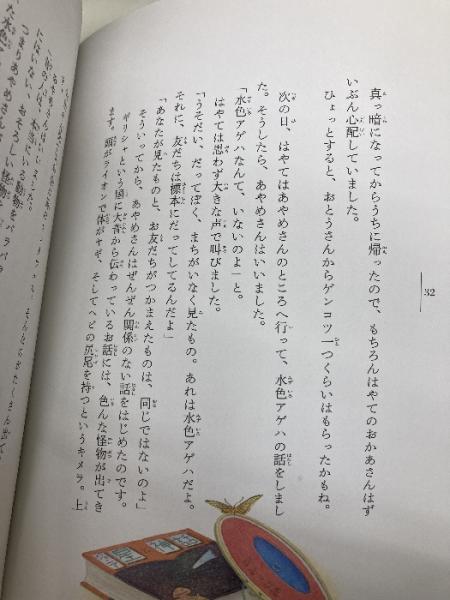 32
真っ暗になってからうちに帰ったので、もちろんはやてのおかあさんはず
いぶん心配していました。
ひょっとすると、おとうさんからゲンコツ一つくらいはもらったかもね。
次の日、はやてはあやめさんのところへ行って、水色アゲハの話をしまし
た。そうしたら、あやめさんはいいました。
「水色アゲハなんて、いないのよ」と。
はやては思わず大きな声で叫びました。
「うそだい、だってぼく、まちがいなく見たもの。あれは水色アゲハだよ。
それに、友だちは標本にだってしてるんだよ」
「あなたが見たものと、お友だちがつかまえたものは、同じではないのよ」
そういってから、あやめさんはぜんぜん関係のない話をはじめたのです。
ギリシャという国に大昔から伝わっているお話には、色んな怪物が出てき
ます。頭がライオンで体がヤギ、そしてヘビの尻尾を持つというキメラ。上